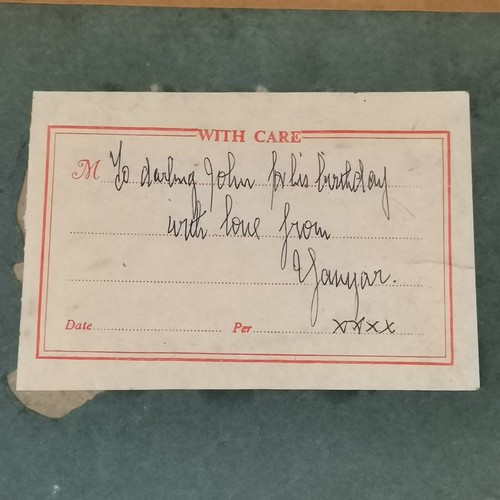 WITH CARE
M To darling John for his birthday
with love from
Yanyar.
Date Per xxxx